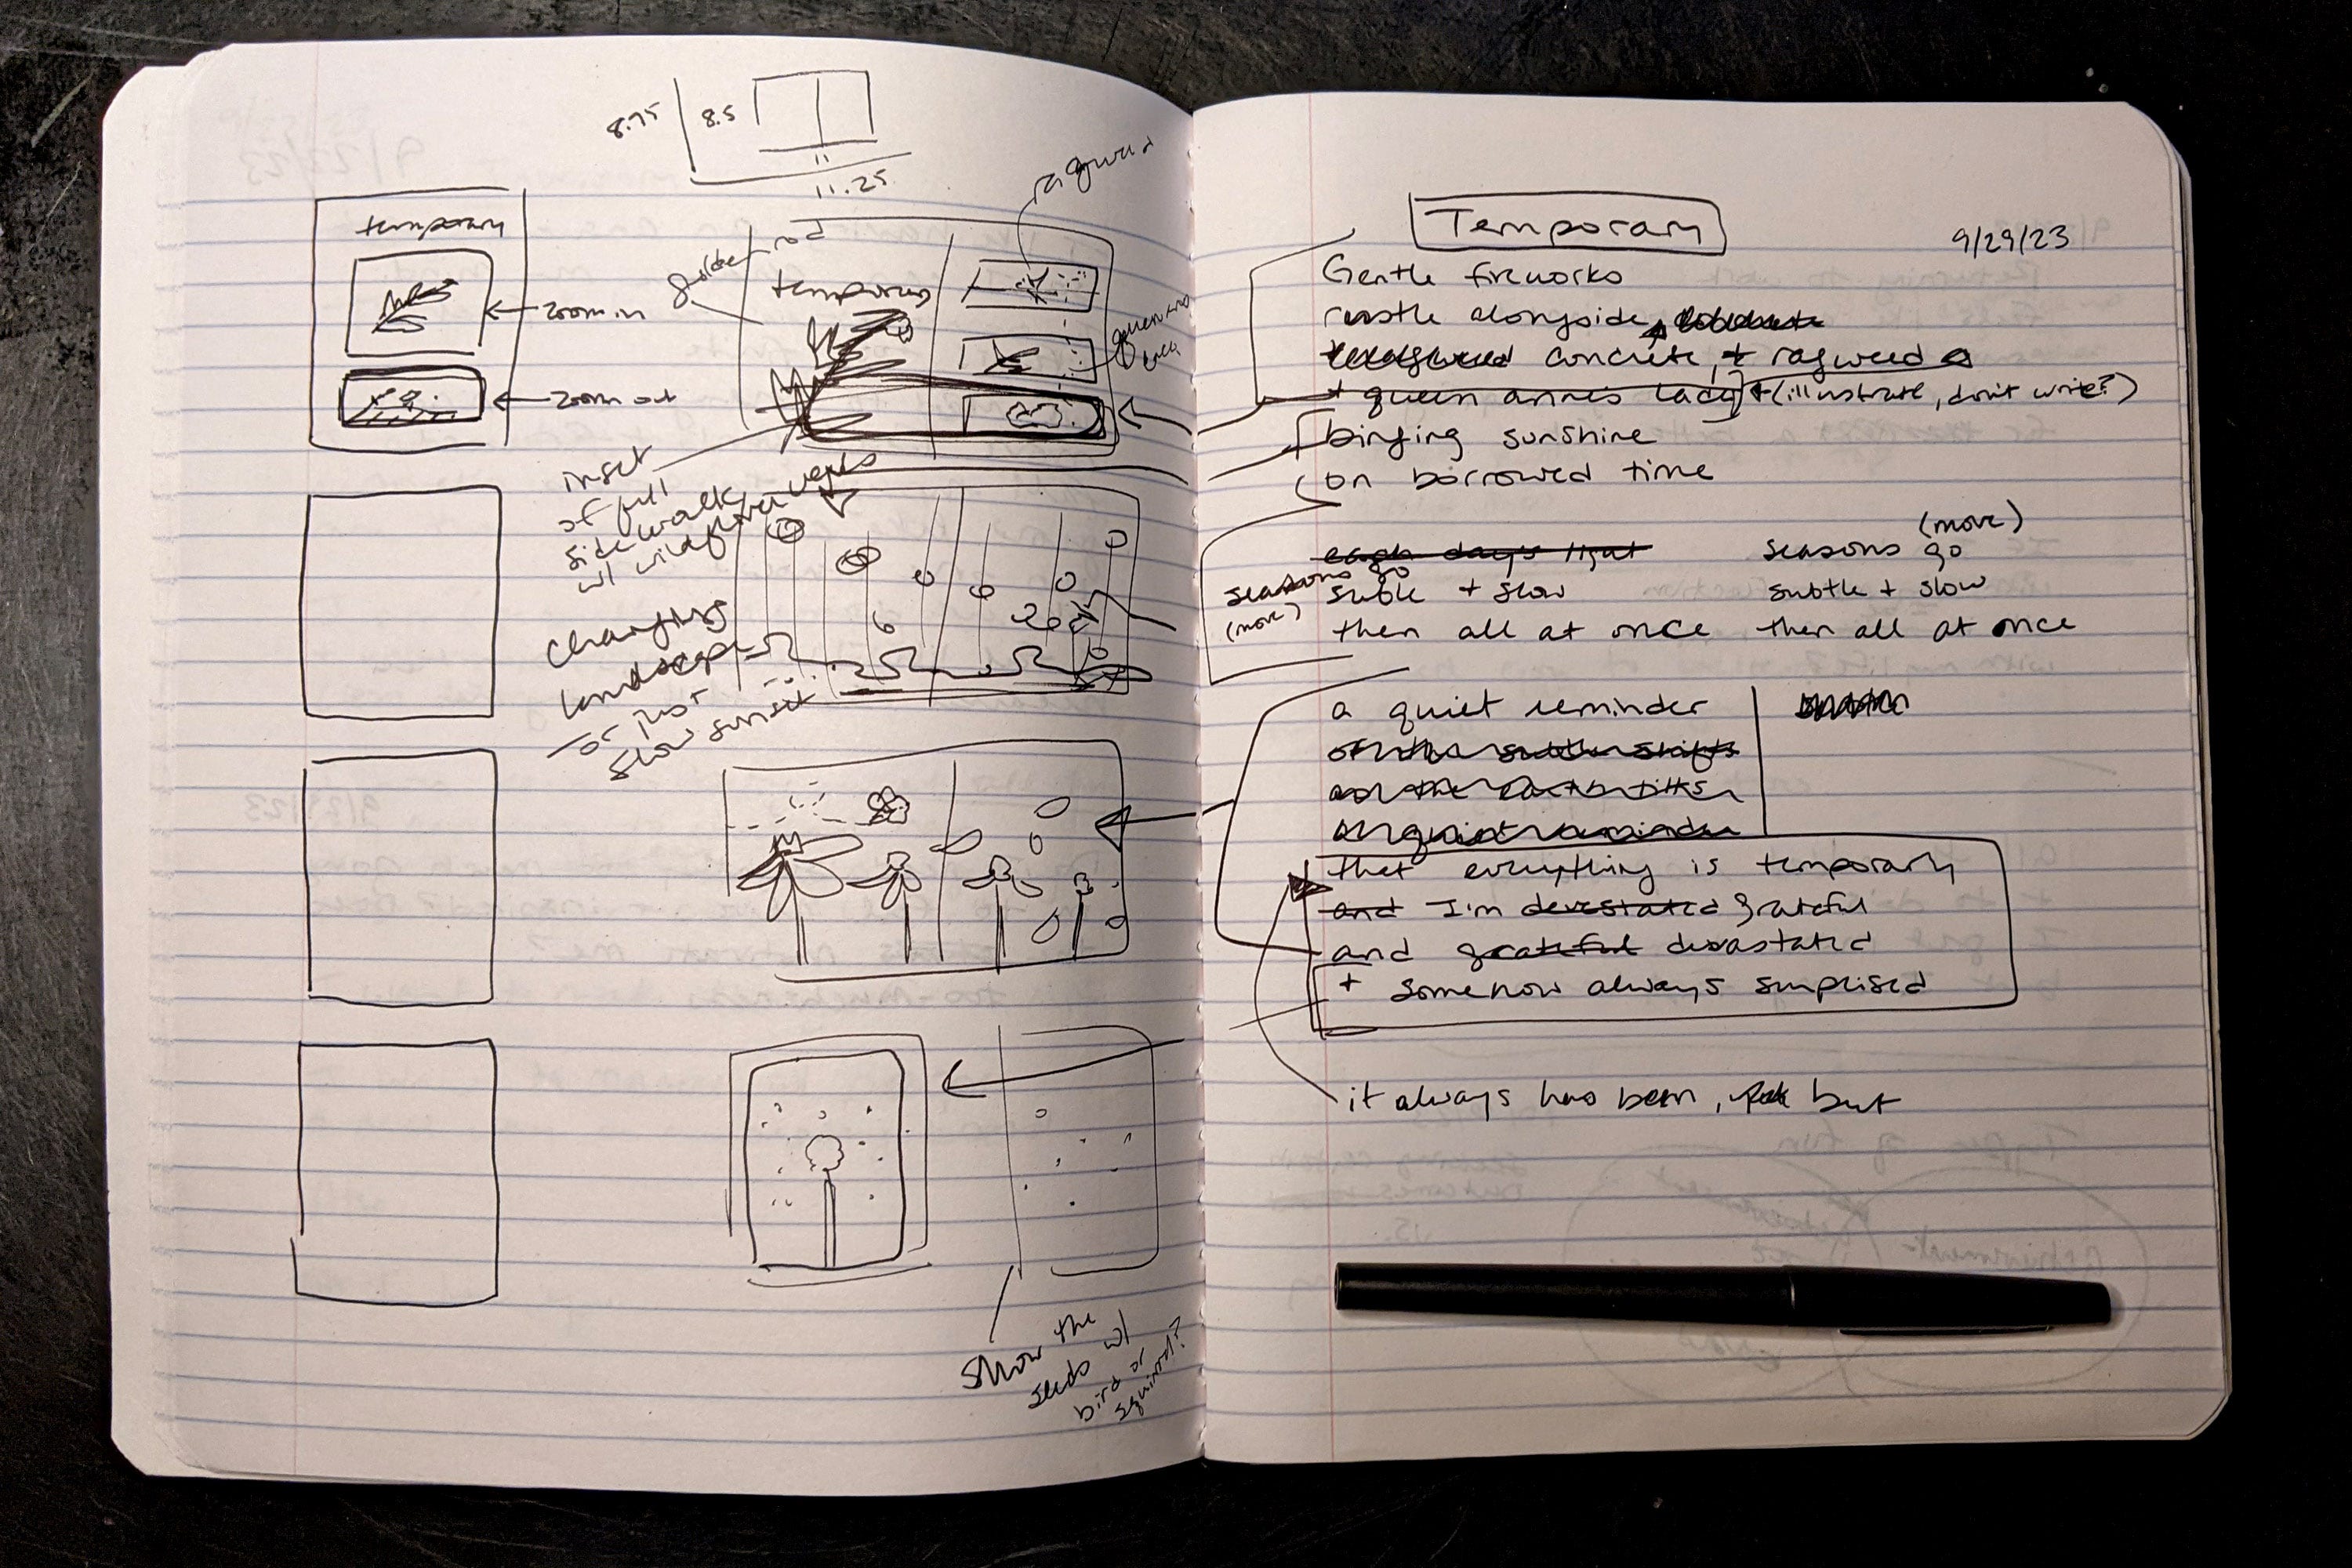 8.75
8.5
11
11.25
ragweed
temporary
zoom in
zoom out
goldenrod
temporary
queen anne
lace
inset
of full
sidewalk
w/ wildflower
changing
landscape
or just
slow sunset
show the
seeds w/
bird or
squirrel?
Temporary
9/29/23
Gentle fireworks
rustle alongside
concrete, + ragweed
+ queen anne's lace (illustrate, don't write?)
binging sunshine
on borrowed time
each day's light
seasons go
(move)
subtle + slow
then all at once
(move)
seasons go
subtle + slow
then all at once
a quiet reminder
of the subtle shifts
as the earth tilts
a quiet reminder
that everything is temporary
and I'm devastated grateful
and grateful devastated
+ somehow always surprised
it always has been, but